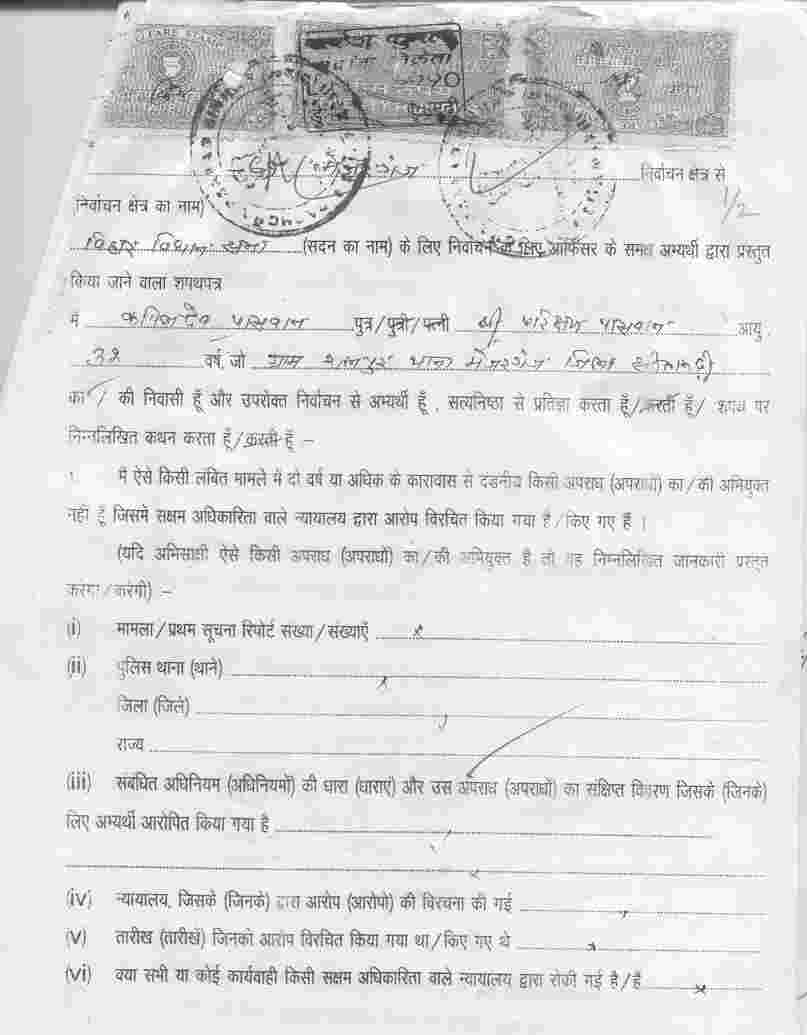 निर्वाचन क्षेत्र से
1/2
निर्वाचन क्षेत्र का नाम)
बिहार विधान सभा (सदन का नाम) के लिए निर्वाचन के लिए ऑफिसर के समक्ष अभ्यर्थी द्वारा प्रस्तुत
किया जाने वाला शपथपत्र
मैं कपिलदेव पासवान पुत्र/पुत्री/पत्नी श्री परिक्षण पासवान आयु
32 वर्ष, जो ग्राम थाना मेजरगंज जिला सीतामढ़ी
का / की निवासी हूँ और उपरोक्त निर्वाचन से अभ्यर्थी हूँ , सत्यनिष्ठा से प्रतिज्ञा करता हूँ/करती हूँ/ शपथ पर
निम्नलिखित कथन करता हूँ/करती हूँ :–
मैं ऐसे किसी लंबित मामले में दो वर्ष या अधिक के कारावास से दंडनीय किसी अपराध (अपराधों) का/की अभियुक्त
नहीं हूँ जिसमें सक्षम अधिकारिता वाले न्यायालय द्वारा आरोप विरचित किया गया है/किए गए हैं ।
(यदि अभिसाक्षी ऐसे किसी अपराध (अपराधों) का/की अभियुक्त है तो वह निम्नलिखित जानकारी प्रस्तुत
करेगा/करेगी) :–
(i) मामला/प्रथम सूचना रिपोर्ट संख्या/संख्याएँ x
(ii) पुलिस थाना (थाने) x
जिला (जिले)
राज्य
(iii) संबंधित अधिनियम (अधिनियमों) की धारा (धाराएं) और उस अपराध (अपराधों) का संक्षिप्त विवरण जिसके (जिनके)
लिए अभ्यर्थी आरोपित किया गया है
x
(iv) न्यायालय, जिसके (जिनके) द्वारा आरोप (आरोपो) की विरचना की गई
(v) तारीख (तारीखें) जिनको आरोप विरचित किया गया था/किए गए थे x
(vi) क्या सभी या कोई कार्यवाही किसी सक्षम अधिकारिता वाले न्यायालय द्वारा रोकी गई है/है x